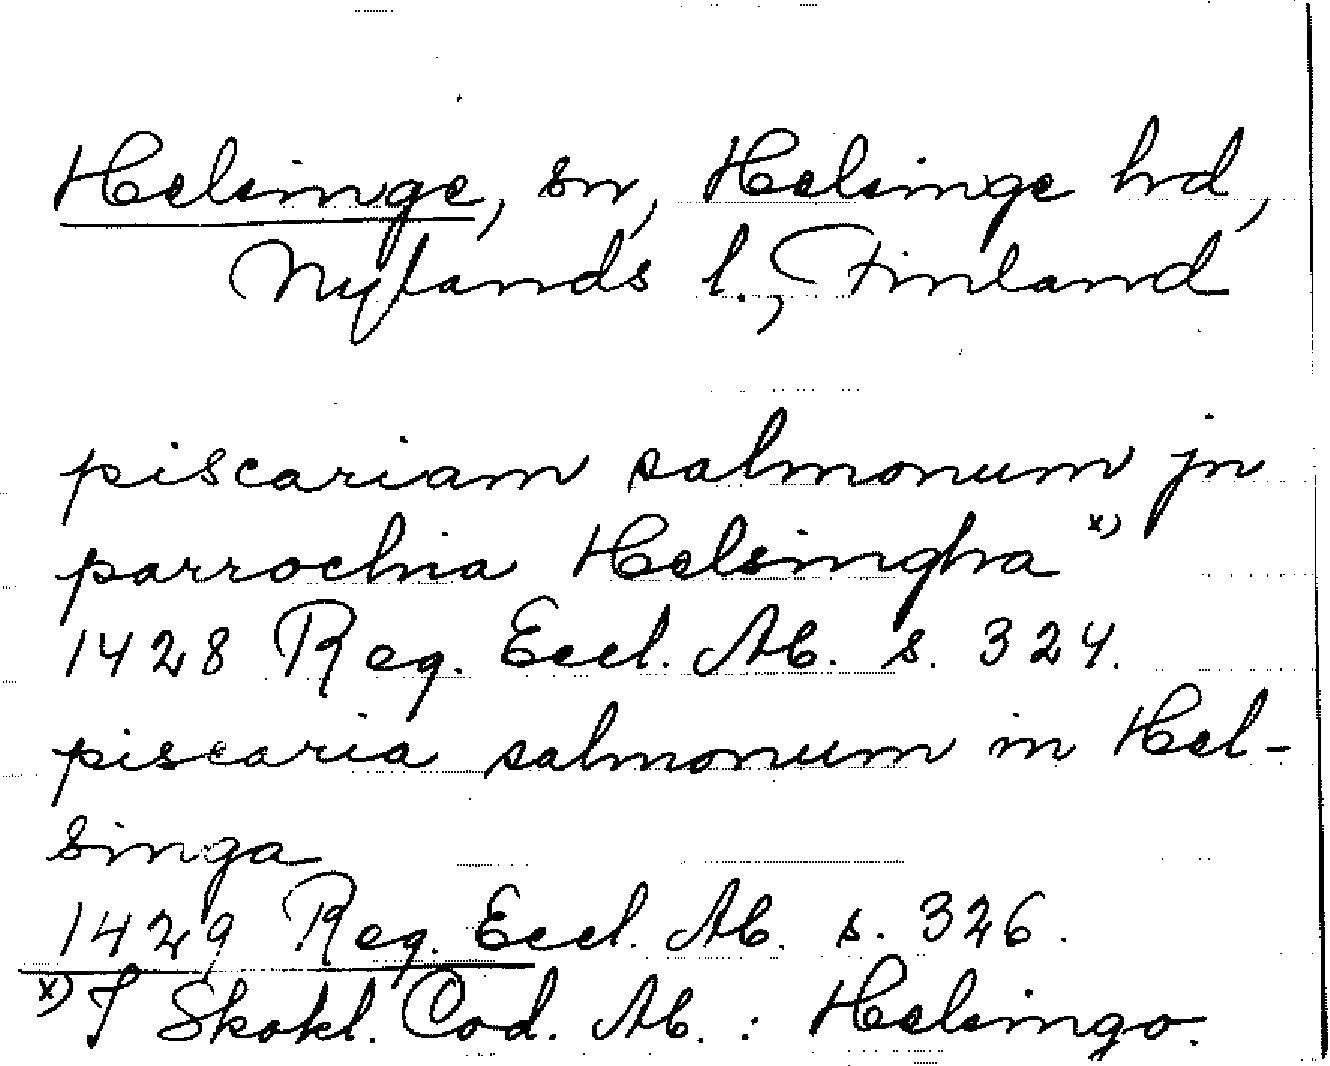 Helsinge, sn, Helsinge hd,
Nylands l., Finland
piscariam salmonum jn
parrochia Helsingha x)
1428 Reg. Eccl. Ab. s. 324.
piscaria salmonum in Hel-
singa
1429 Reg. Eccl. Ab. s. 326.
x) I Skokl. Cod. Ab. : Helsingo.